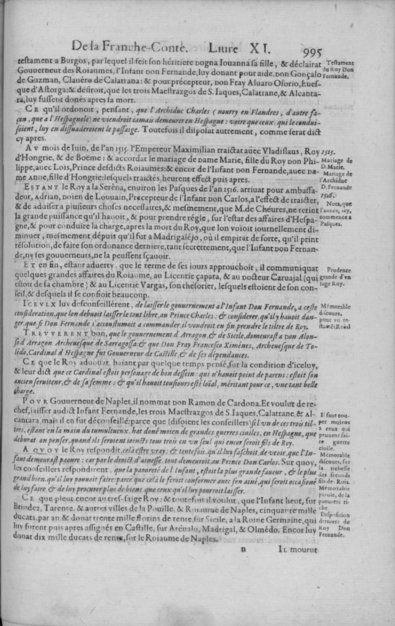 De la Franche-Conté. Liure XI. 995
testament a Burgos, par lequel il feit son héritière dogna Iouanna sa fille, & déclairat
Gouuerneur des Roiaumes, l'Infant don Fernande, luy donant pour aide, don Gonçalo
de Guzman, Clauéro de Calatraua: & pour précepteur, don Fray Aluaro Osorio, Euesque
d'Astorga: & désiroit, que les trois Maestrazgos de S. Iaques, Calatraua, & Alcantara,
luy fussent donés apres sa mort.
Ce qu'il ordonoit, pensant, que l'Archiduc Charles (nourry en Flandres, d'autre façon,
que a l'Hespagnole) ne viendroit iamais demeurer en Hespagne: voire que ceux qui le conduisoient,
luy en dissuaderoient le passaige. Toutefois il disposat autrement, comme serat dict
cy apres.
Av mois de Iuin, de l'an 1515. l'Empereur Maximilian traictat auec Vladislaus, Roy
d'Hongrie, & de Boëme: & accordat le mariage de dame Marie, fille du Roy don Philippe,
auec Loïs, Prince desdicts Roiaumes: & encor de l'Infant don Fernande, auec dame
Anne, fille d'Hongrie: lesquels traictés heurent effect puis apres.
Estant le Roy a la Seréna, enuiron les Pasques de l'an 1516. arriuat pour Ambassadeur,
Adrian, doien de Louuain, Précepteur de l'Infant don Carlos, a l'effect de traicter,
& de aduiser a plusieurs choses necessaires, & mesmement, que M. de Cheures, ne retint
la grande puissance qu'il hauoit, & pour prendre régle, sur l'estat des affaires d'Hespagne,
& pour conduire la charge, apres la mort du Roy, que lon voioit iournellement diminuer,
mesmement depuis qu'il fut a Madrigaléjo, où il empirat de sorte, qu'il print
résolution, de faire son ordonance derniere, tant secrettement, que l'Infant don Fernande,
ny ses gouuerneurs, ne la peussent sçauoir.
Et en fin, estant aduerty, que le terme de ses iours approchoit, il communiquat
quelques grandes affaires du Roiaume, au Licentie çapata, & au docteur Caruajal, (qui
estoit de sa chambre; & au Licentie Vargas, son thésorier, lesquels estoient de son conseil,
& desquels il se confioit beaucoup.
Icevlx luy desconseillèrent, de laisser le gouuernement a l'Infant Don Fernande, a ceste
considération, que lon debuoit laisser le tout libre, au Prince Charles: & considerer, qu'il y hauoit danger,
que si Don Fernande s'accoustumoit a commander il voudroit en fin prendre le tiltre de Roy.
Trevverent bon, que le gouuernement d'Arragon, & de Sicile, demeurat a Don Alonso
d'Arragon Archeuesque de Sarragosse: & que Don Fray Francesco Ximénes, Archeuesque de Tolédo,
Cardinal d'Hespagne fut Gouuerneur de Castille & de ses dépendances.
Ce que le Roy aduisat, haiant par quelque temps pensé, sur la condition d'iceluy,
& leur dict que ce Cardinal estoit personage de bon dessein: qui n'hauoit point de parens: estoit son
ancien seruiteur, & de sa femme: & qu'il hauoit tousiours esté loial, méritant pour ce, vne tant belle
charge.
Povr Gouuerneur de Naples, il nommat don Ramon de Cardona. Et voulut derechef,
laisser audict Infant Fernande, les trois Maestrazgos de S. Iaques, Calatraue, & Alcantara:
mais il en fut déconseillé: parce que (disoient les conseillers) si l'vn de ces trois maistres,
estant en la main du tumultuoit, hat doné moien de grandes guerres ciuiles, en Hespagne, que
deburat on penser, quand ils seroient trétous tous trois en vn seul qui encor seroit fils de Roy.
A qvoy le Roy respondit, cela estre vray: & toutesfois, qu'il luy faschoit de veoir, que l'Infant
demeurast pauure: car par le droict d'ainesse, tout demeuroit au Prince Don Carlos. Sur quoy,
les conseilliers respondirent, que la pauureté de l'Infant, estoit la plus grande faueur, & le plus
grand bien, qu'il luy pouuoit faire: parce que cela le feroit conformer auec son ainé, qui seroit occasioné
de luy faire, & de luy procurer plus de biens que ceux qu'il luy pourroit laisser.
Ce que pleut encor au tres-saige Roy: & toutesfois il voulut, que l'Infant heut, sur
Brindez, Tarente, & autres villes de la Pouille, & Roiaume de Naples, cinquante mille
ducats, par an: & donat trente mille florins de rente, sur Sicile, a la Reine Germaine, qui
luy furent puis apres assignés en Castille, sur Arénalo, Madrigal, & Olmédo. Encor luy
donat dix mille ducats de rente, sur le Roiaume de Naples.
Testament
du Roy Don
Fernande.
1515.
Mariage de
D. Marie.
Mariage de
Archiduc
D. Fernande
1516.
Nota, que
l'année, 1517,
commence a
Pasques.
Prudence
grande d'vn
sage Roy.
Mémorable
discours,
Il faut tousiours
Mémorable
discours, sur
la richesse
des seconds
fils de Rois.
Mémorable
Don
Fernande.
D
Il mourut